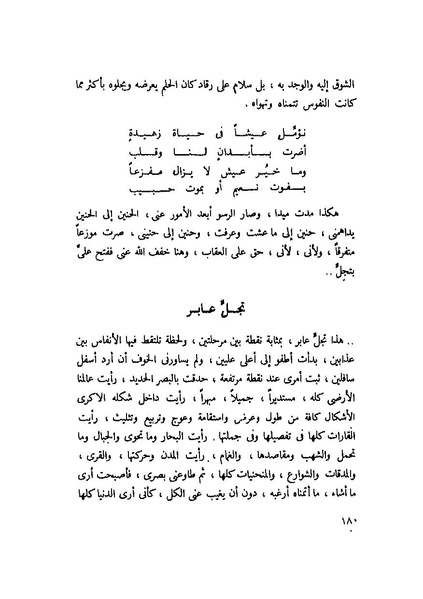 الشوق إليه والوجد به ، بل سلام على رقاد كان الحلم يعرضه ويجلوه بأكثر مما
كانت النفوس تتمناه وتهواه .
نؤمّل عيشاً فى حياة زهيدةٍ
أضرت بأبدان لنا وقلب
وما خيُر عيش لا يزال مفزعاً
بفوت نعيم أو بموت حبيب
هكذا مدت ميدا ، وصار الرسو أبعد الأمور عنى ، الحنين إلى الحنين
يداهمنى ، حنين إلى ما عشت وعرفت ، وحنين إلى حنينى ، صرت موزعاً
متفرقاً ، ولأنى ، لأنى ، حق على العقاب ، وهنا خفف الله عنى ففتح علىَّ
بتجلٍّ ..
تجلٍّ عابر
.. هذا تجلٍّ عابر ، بمثابة نقطة بين مرحلتين ، ولحظة تلتقط فيها الأنفاس بين
عذابين ، بدأت أطفو إلى أعلى عليين ، ولم يساورنى الخوف أن أرد أسفل
سافلين ، ثبت أمرى عند نقطة مرتفعة ، حدقت بالبصر الحديد ، رأيت عالمنا
الأرضى كله ، مستديراً ، جميلاً ، مبهراً ، رأيت داخل شكله الاكرى
الأشكال كافة من طول وعرض واستقامة وعوج وتربيع وتثليث ، رأيت
القارات كلها فى تفصيلها وفى جملتها . رأيت البحار وما تحوى والجبال وما
تحمل والشهب ومقاصدها ، والغمام ، رأيت المدن وحركتها ، والقرى ،
والمدقات والشوارع ، والمنحنيات كلها ، ثم طاوعنى بصرى ، فأصبحت أرى
ما أشاء ، ما أتمناه أرغبه ، دون أن يغيب عنى الكل ، كأنى أرى الدنيا كلها
١٨٠